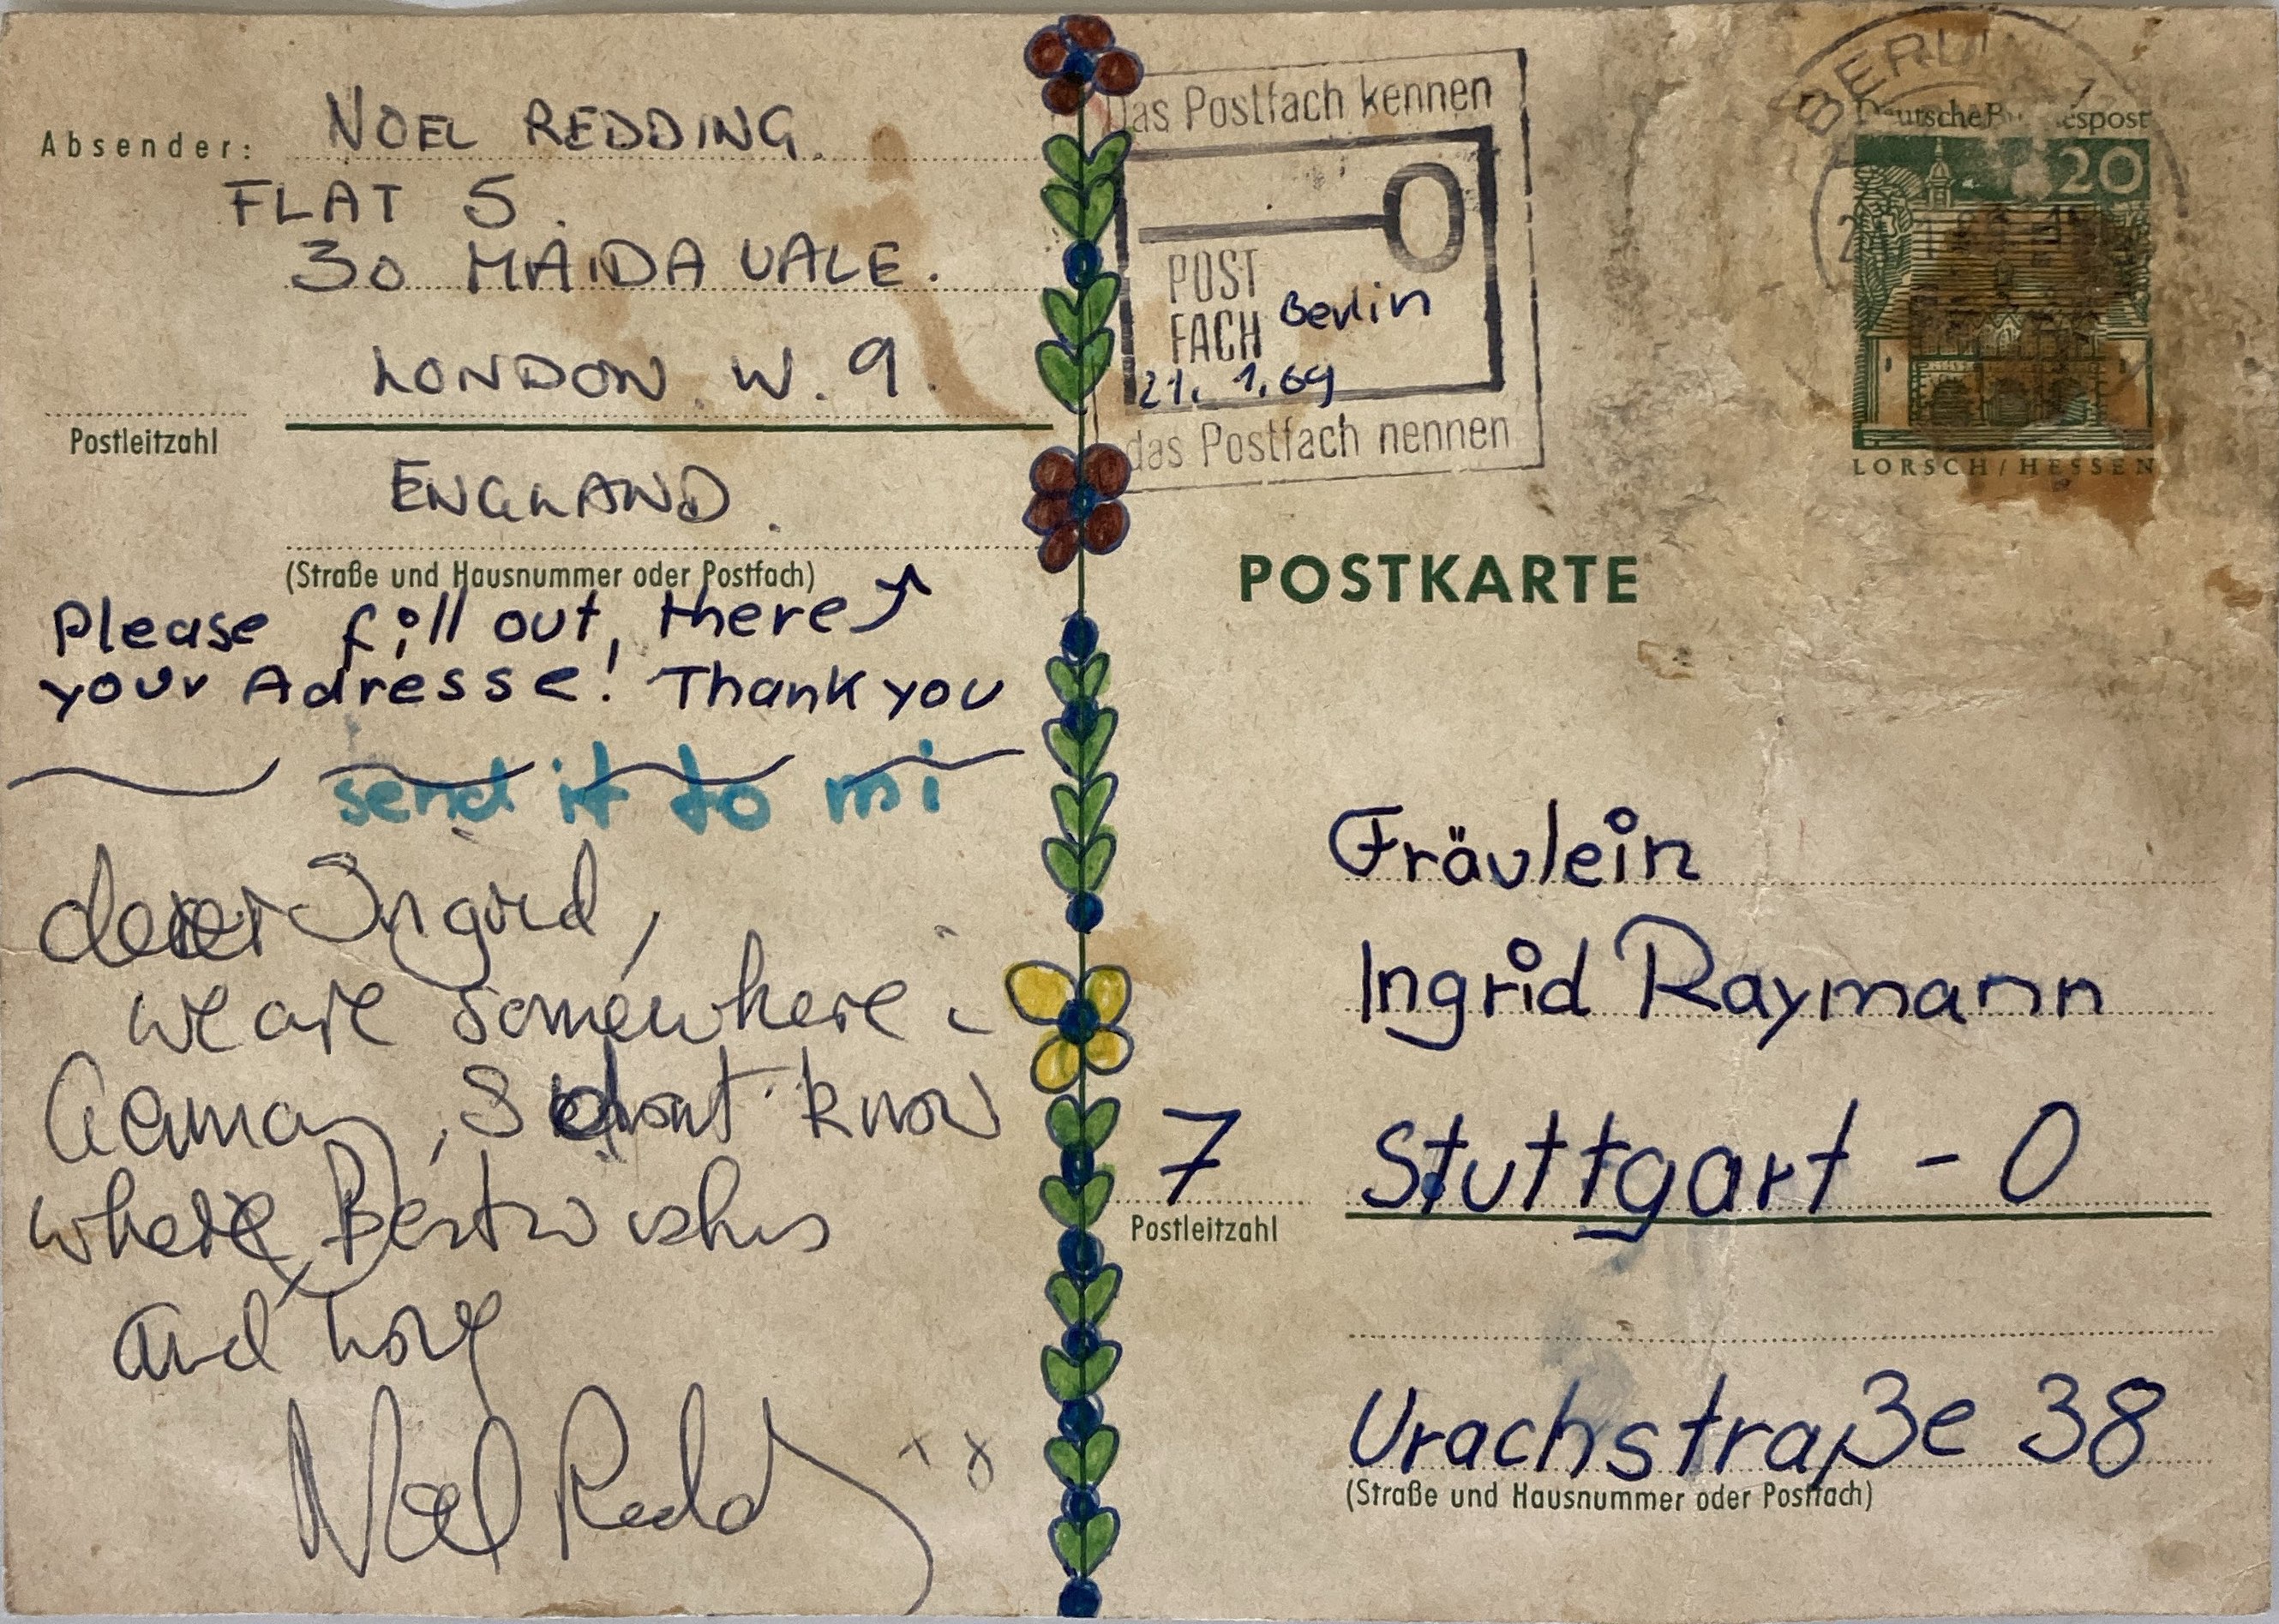 Absender: NOEL REDDING.
FLAT 5.
30 MAIDA VALE.
LONDON W. 9.
Postleitzahl
ENGLAND.
(Straße und Hausnummer oder Postfach)
Please fill out, there
your Adresse! Thank you
send it to mi
dear Ingrid,
we are somewhere i
Germany, I dont know
where, Best wishes
and Love
Noel Redding xx
Das Postfach kennen
POST
FACH Berlin
21. 1. 69
das Postfach nennen
BERLIN
Deutsche Bundespost
20
LORSCH/HESSEN
POSTKARTE
Fräulein
Ingrid Raymann
7 Stuttgart - O
Postleitzahl
Urachstraße 38
(Straße und Hausnummer oder Postfach)